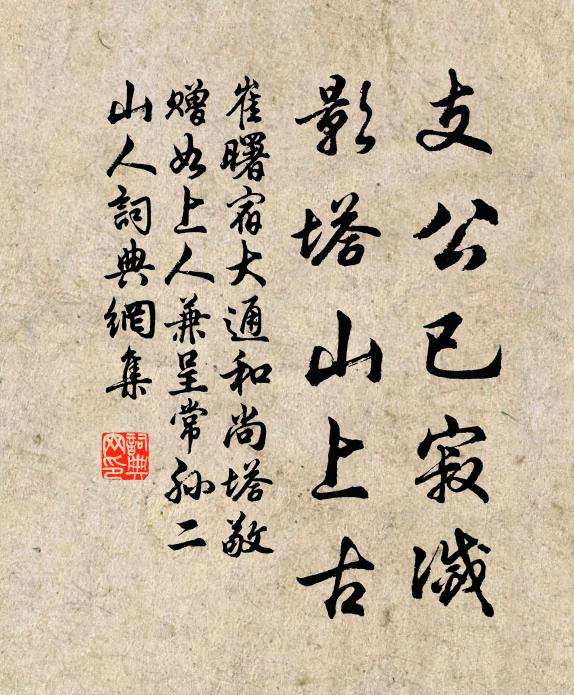 支公已寂滅
影塔山上古
崔曙宿大通和尚塔敬
贈如上人兼呈常孫二
山人詞典網集
詞典网印